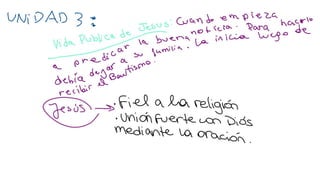 UNiDAD 3:
Vida Publica de Jesus: Cuando empieza
a predicar la buena noticia. Para hacerlo
debía dejar a su familia. La inicia luego de
recibir el Bautismo.
Jesús → · Fiel a la religión
· Unión Fuerte con Diós
mediante la oración.